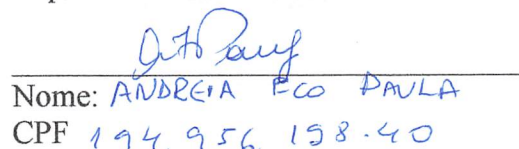 Nome: ANDREIA ECO PAULA
CPF 194.956.198-40